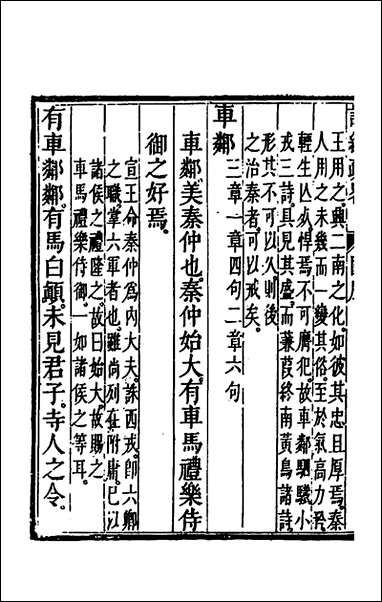 王用之。興二南之化。如彼其忠且厚焉。秦
人用之未幾而一變其俗。至於氣高力勇。
輕生𠅤死。悍焉不可麕犯。故車鄰駟驖小
戎三詩。具見其盛。而蒹葭終南黃鳥諸詩。
形其不可以久。則後
之治秦者。可以戒矣。
車鄰三章一章四句二章六句
車鄰。美秦仲也。秦仲始大。有車馬禮樂侍
御之好焉。
宣王命秦仲為內大夫。誅西戎。卽六卿
之職。掌六軍者也。雖尚列在附庸。已以
諸侯之禮隆之。故曰始大。故賜之
車馬禮樂侍御。一如諸侯之等耳。
有車鄰鄰。有馬白顛。未見君子。寺人之令。